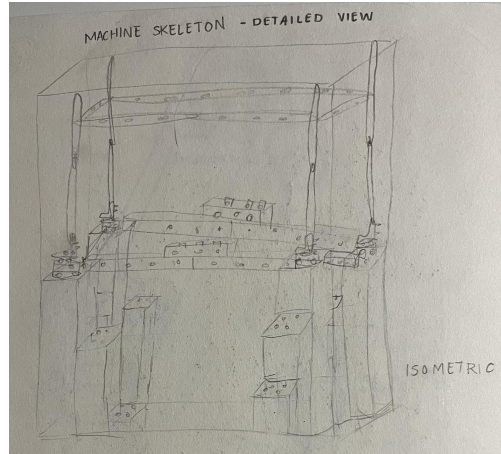 MACHINE SKELETON - DETAILED VIEW
ISOMETRIC